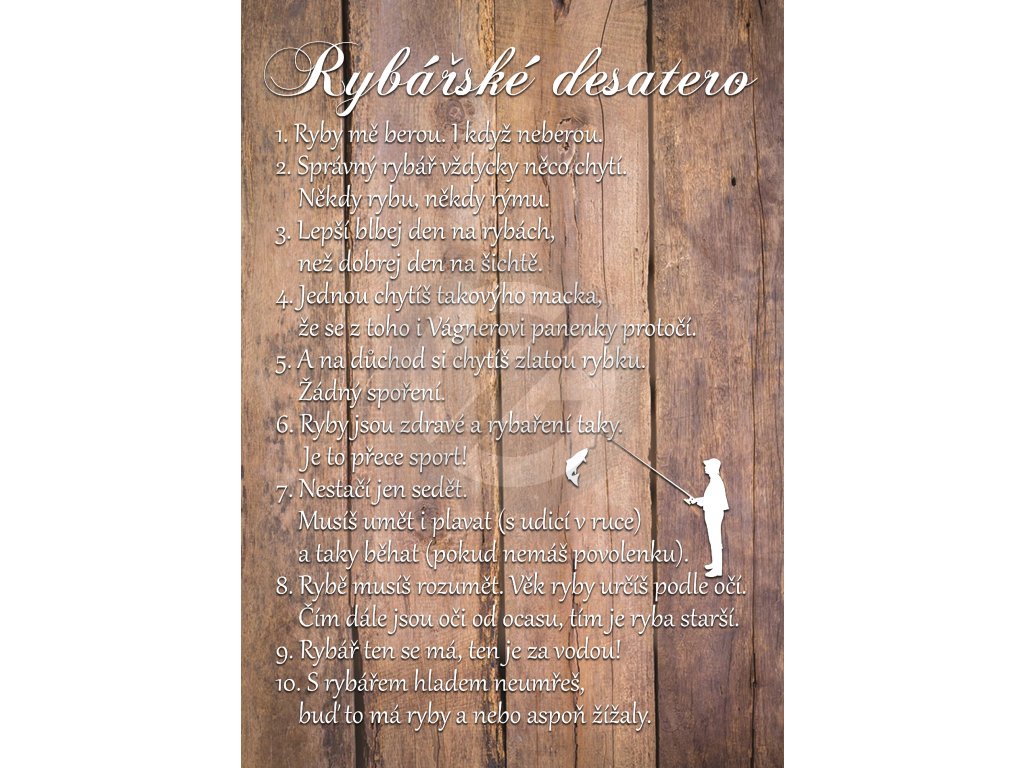 Rybářské desatero
1. Ryby mě berou. I když neberou.
2. Správný rybář vždycky něco chytí.
Někdy rybu, někdy rýmu.
3. Lepší blbej den na rybách,
než dobrej den na šichtě.
4. Jednou chytíš takovýho macka,
že se z toho i Vágnerovi panenky protočí.
5. A na důchod si chytíš zlatou rybku.
Žádný spoření.
6. Ryby jsou zdravé a rybaření taky.
Je to přece sport!
7. Nestačí jen sedět.
Musíš umět i plavat (s udicí v ruce)
a taky běhat (pokud nemáš povolenku).
8. Rybě musíš rozumět. Věk ryby určíš podle očí.
Čím dále jsou oči od ocasu, tím je ryba starší.
9. Rybář ten se má, ten je za vodou!
10. S rybářem hladem neumřeš,
buď to má ryby a nebo aspoň žížaly.